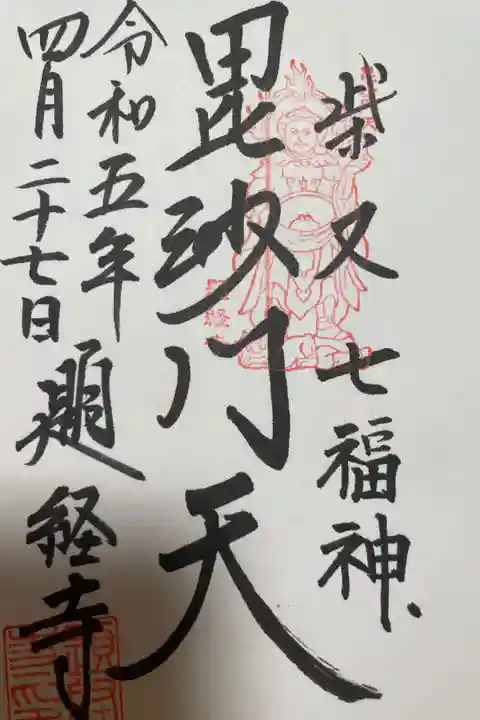 柴又七福神
毘沙門天
令和五年
四月二十七日
題経寺